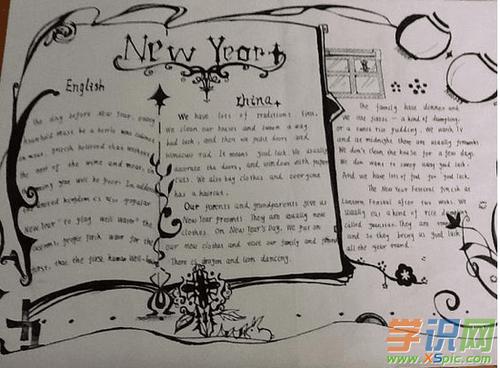 New Year
English
The day before New Year, every
household must be a bottle
in meat. British believed that without
the rest of the wine and meat, in
coming year will be poor. In addition
the united kingdom is also popular
New Year "to plug well water" the
customs, people for the
first, that the first human well-
China
We have lots of traditions. First,
we clean our houses and sweep away
bad luck, and then we paste doors and
windows red. It means good luck. We usually
decorate the doors and windows with paper
cuts. We also buy clothes and everyone
has a haircut.
Our parents and grandparents give us
New Year presents. They are usually new
clothes. On New Year's Day, we put on
our new clothes and visit our family and friends
There is dragon and lion dancing.
The family have dinner and
we use jiaozi - a kind of dumpling,
or a sweet rice pudding. We watch TV
and at midnight there are usually fireworks
We don't clean the house for a few days.
We don want to sweep away good luck.
And we have lots of food for good luck.
The New Year Festival finish at
Lantern Festival after two weeks. We
usually eat a kind of rice
called yuanxiao. They are round
and so they bring us good luck
all the year round.
学识网
www.XSpic.com